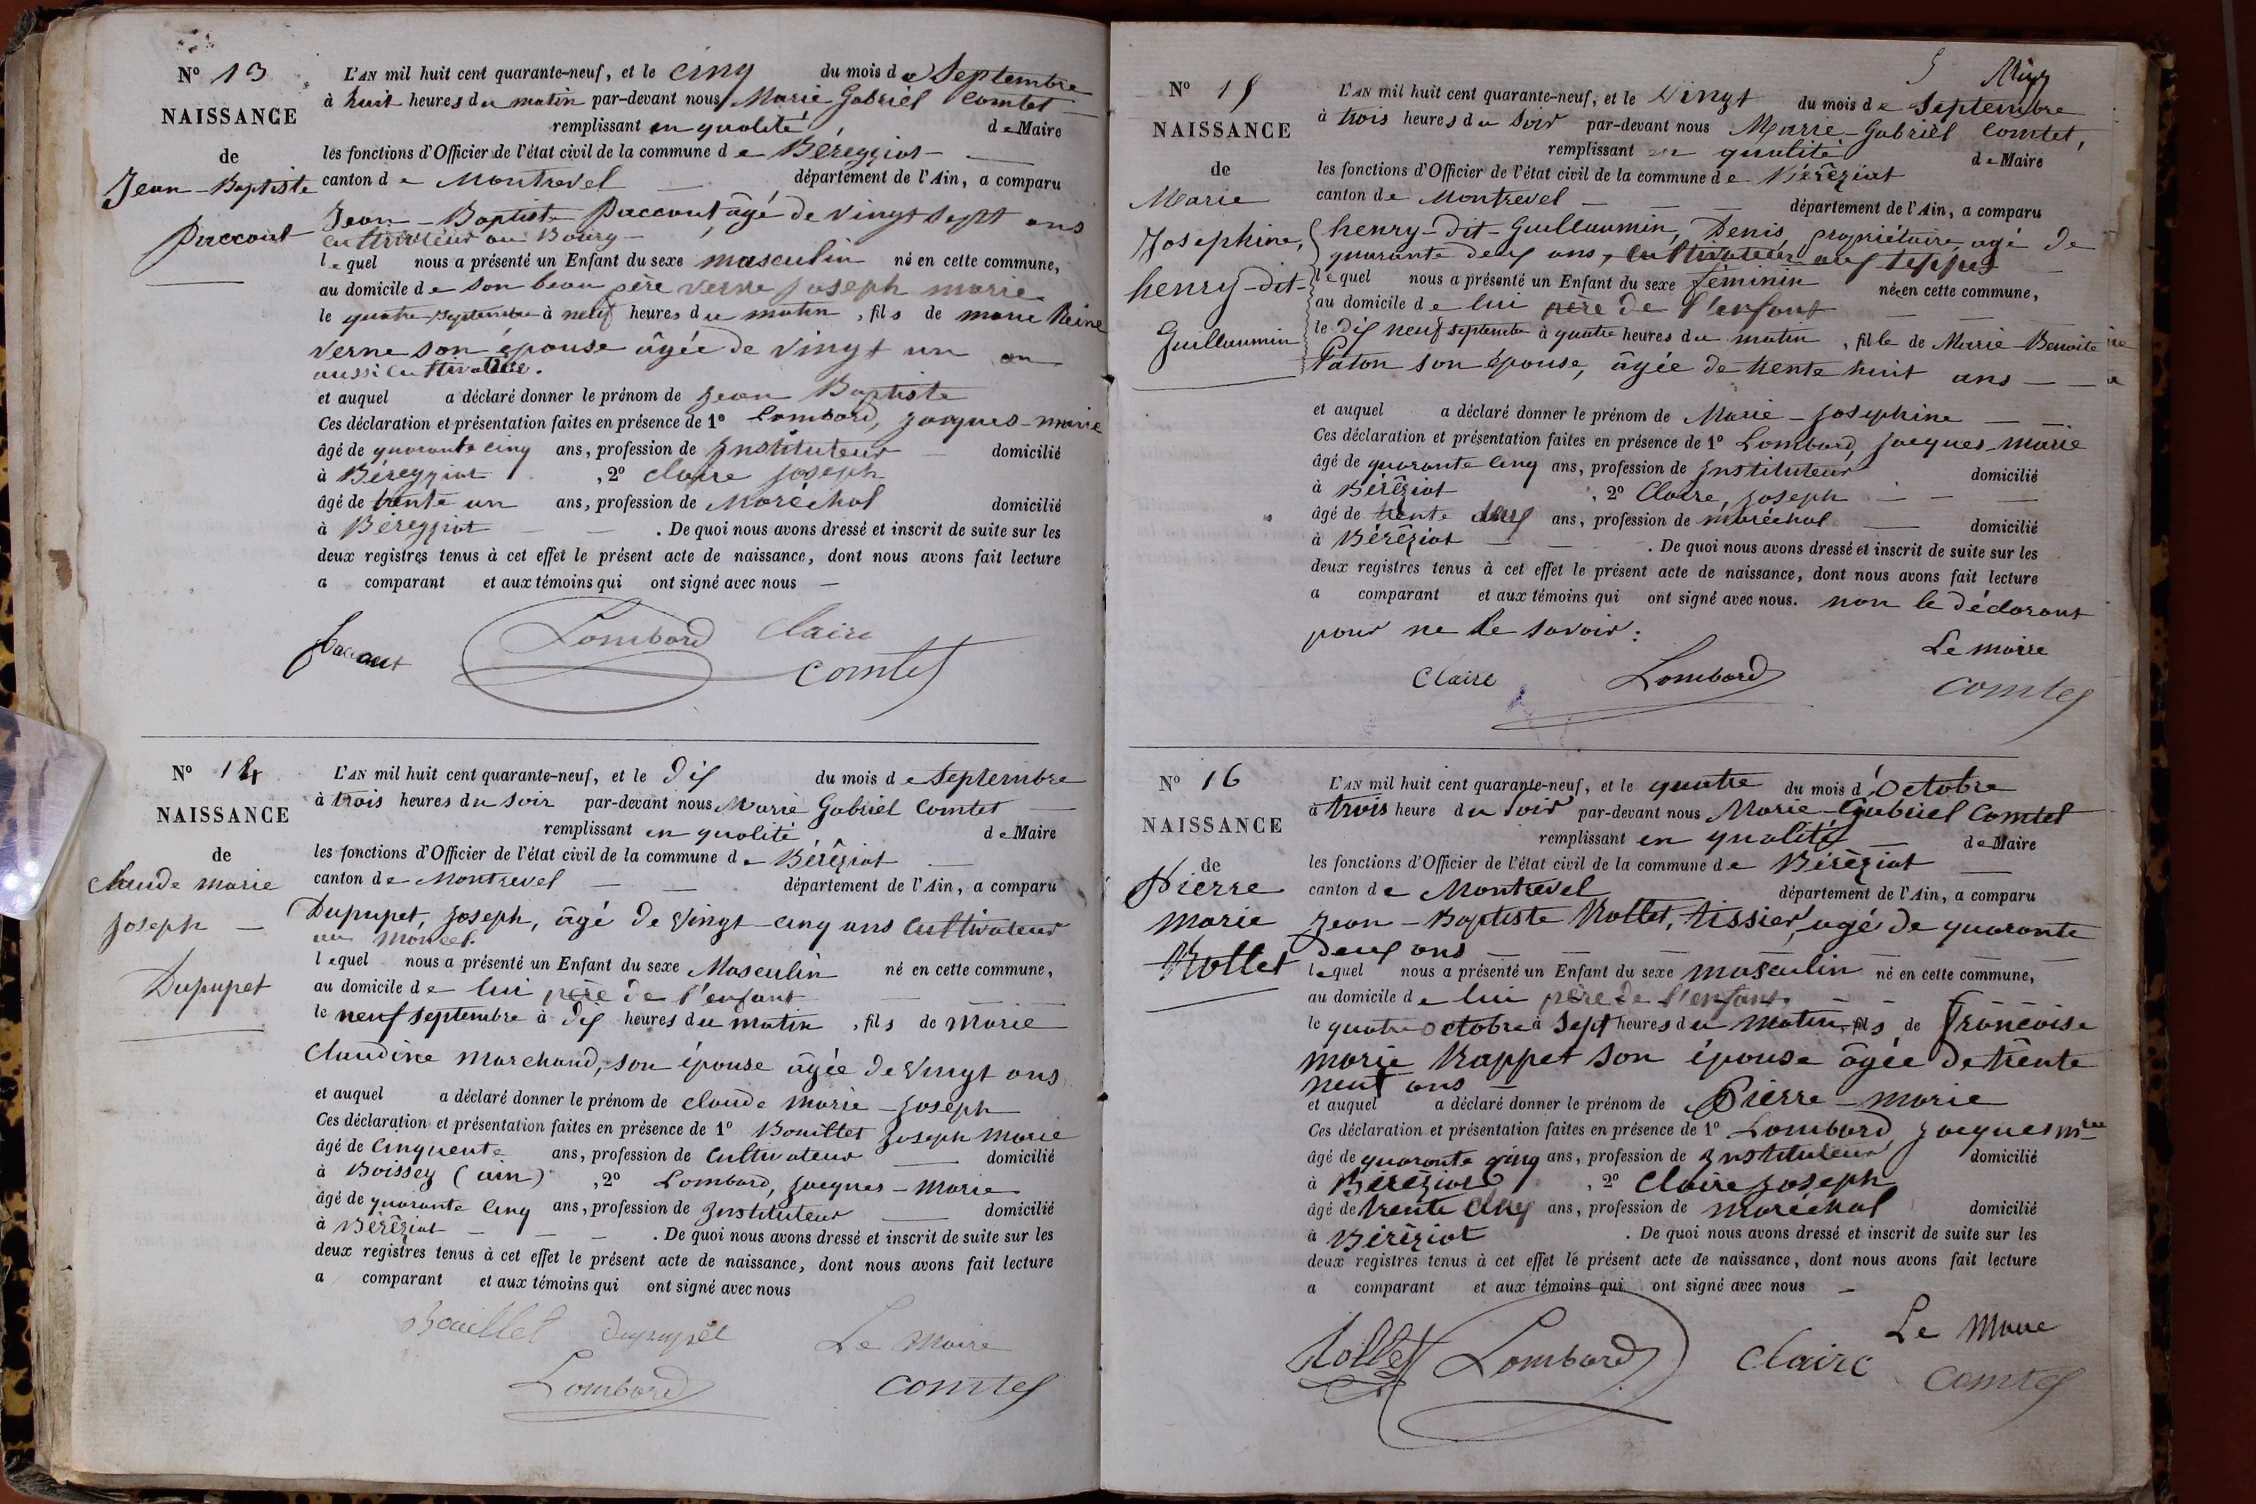 N° 13
NAISSANCE
de
Jean-Baptiste
Paccout
L'AN mil huit cent quarante-neuf, et le cinq du mois de Septembre
à huit heures du matin par-devant nous Marie Gabriel Comtet
remplissant en qualité de Maire
les fonctions d'Officier de l'état civil de la commune de Béreyziat
canton de Montrevel département de l'Ain, a comparu
Jean-Baptiste Paccout âgé de vingt sept ans
cultivateur au Bourg
lequel nous a présenté un Enfant du sexe masculin né en cette commune,
au domicile de son beau père Verne Joseph marie
le quatre Septembre à neuf heures du matin, fils de marie Reine
Verne son épouse âgée de vingt un an
aussi cultivatrice.
et auquel a déclaré donner le prénom de Jean Baptiste
Ces déclaration et présentation faites en présence de 1° Lombard, Jacques-marie
âgé de quarante cinq ans, profession de Instituteur domicilié
à Béreyziat, 2° Claire Joseph
âgé de trente un ans, profession de Maréchal domicilié
à Béreyziat. De quoi nous avons dressé et inscrit de suite sur les
deux registres tenus à cet effet le présent acte de naissance, dont nous avons fait lecture
a comparant et aux témoins qui ont signé avec nous
Paccout Lombard Claire
Comtet
N° 14
NAISSANCE
de
Claude marie
Joseph
Dupupet
L'AN mil huit cent quarante-neuf, et le dix du mois de Septembre
à trois heures du soir par-devant nous Marie Gabriel Comtet
remplissant en qualité de Maire
les fonctions d'Officier de l'état civil de la commune de Béréziat
canton de Montrevel département de l'Ain, a comparu
Dupupet, Joseph, âgé de vingt-cinq ans Cultivateur
au Moncel.
lequel nous a présenté un Enfant du sexe Masculin né en cette commune,
au domicile de lui père de l'enfant
le neuf septembre à dix heures du matin, fils de Marie
Claudine Marchand, son épouse âgée de vingt ans
et auquel a déclaré donner le prénom de Claude Marie-Joseph
Ces déclaration et présentation faites en présence de 1° Bouillet Joseph Marie
âgé de cinquante ans, profession de Cultivateur domicilié
à Boissey (ain), 2° Lombard, Jacques-Marie
âgé de quarante cinq ans, profession de Instituteur domicilié
à Béréziat. De quoi nous avons dressé et inscrit de suite sur les
deux registres tenus à cet effet le présent acte de naissance, dont nous avons fait lecture
a comparant et aux témoins qui ont signé avec nous
Bouillet Dupupet Le Maire
Lombard Comtet
5
N° 15
NAISSANCE
de
Marie
Josephine,
henry-dit-
Guillaumin
L'AN mil huit cent quarante-neuf, et le vingt du mois de Septembre
à trois heures du soir par-devant nous Marie-Gabriel Comtet,
remplissant en qualité de Maire
les fonctions d'Officier de l'état civil de la commune de Béréziat
canton de Montrevel département de l'Ain, a comparu
henry-dit-Guillaumin, Denis, propriétaire, agé de
quarante deux ans, cultivateur aux teppes
lequel nous a présenté un Enfant du sexe féminin née en cette commune,
au domicile de lui père de l'enfant
le dix neuf septembre à quatre heures du matin, fille de Marie Benoite
Paton son épouse, âgée de trente huit ans
et auquel a déclaré donner le prénom de Marie-Josephine
Ces déclaration et présentation faites en présence de 1° Lombard, Jacques-marie
âgé de quarante cinq ans, profession de Instituteur domicilié
à Béréziat, 2° Claire, Joseph
âgé de trente ans, profession de maréchal domicilié
à Béréziat. De quoi nous avons dressé et inscrit de suite sur les
deux registres tenus à cet effet le présent acte de naissance, dont nous avons fait lecture
a comparant et aux témoins qui ont signé avec nous. non le déclarant
pour ne le savoir:
Le maire
Claire Lombard Comtet
N° 16
NAISSANCE
de
Pierre
marie
Rollet
L'AN mil huit cent quarante-neuf, et le quatre du mois d'Octobre
à trois heure du soir par-devant nous Marie-Gabriel Comtet
remplissant en qualité de Maire
les fonctions d'Officier de l'état civil de la commune de Béréziat
canton de Montrevel département de l'Ain, a comparu
Jean-Baptiste Rollet, tissier, agé de quarante
deux ans
lequel nous a présenté un Enfant du sexe masculin né en cette commune,
au domicile de lui père de l'enfant
le quatre octobre à sept heures du matin, fils de françoise
marie Rappet son épouse âgée de trente
neuf ans
et auquel a déclaré donner le prénom de Pierre-marie
Ces déclaration et présentation faites en présence de 1° Lombard, Jacques mrie
âgé de quarante cinq ans, profession de Instituteur domicilié
à Béréziat, 2° Claire Joseph
âgé de trente ans, profession de maréchal domicilié
à Béréziat. De quoi nous avons dressé et inscrit de suite sur les
deux registres tenus à cet effet le présent acte de naissance, dont nous avons fait lecture
a comparant et aux témoins qui ont signé avec nous
Le Maire
Rollet Lombard Claire Comtet